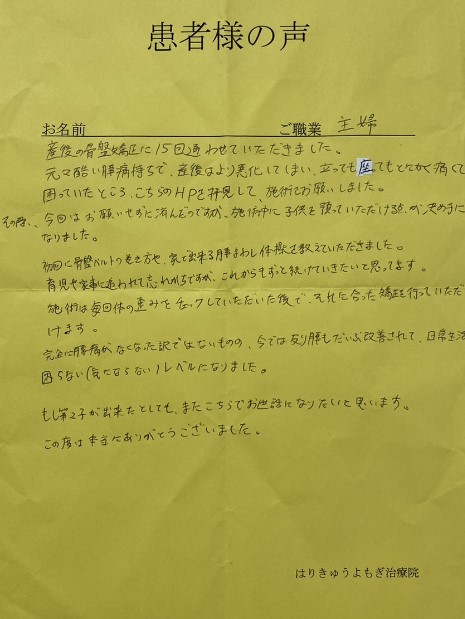 患者様の声
お名前 ご職業 主婦
産後の骨盤矯正に15回通わせていただきました。
元々酷い腰痛持ちで、産後はより悪化してしまい、立っても座ってもとにかく痛くて
困っていたところ、こちらのHPを拝見して、施術をお願いしました。
その際、今回はお願いせずに済んだのですが、施術中に子供を預っていただける点が決め手に
なりました。
初回に骨盤ベルトの巻き方や、家で出来る腰まわし体操を教えていただきました。
育児や家事に追われて忘れがちですが、これからもずっと続けていきたいと思ってます。
施術は毎回体の歪みをチェックしていただいた後で、それに合った矯正を行っていただ
けます。
完全に腰痛がなくなった訳ではないものの、今では反り腰もだいぶ改善されて、日常生活
困らない(気にならない)レベルになりました。
もし第2子が出来たとしても、またこちらでお世話になりたいと思います。
この度は本当にありがとうございました。
はりきゅうよもぎ治療院